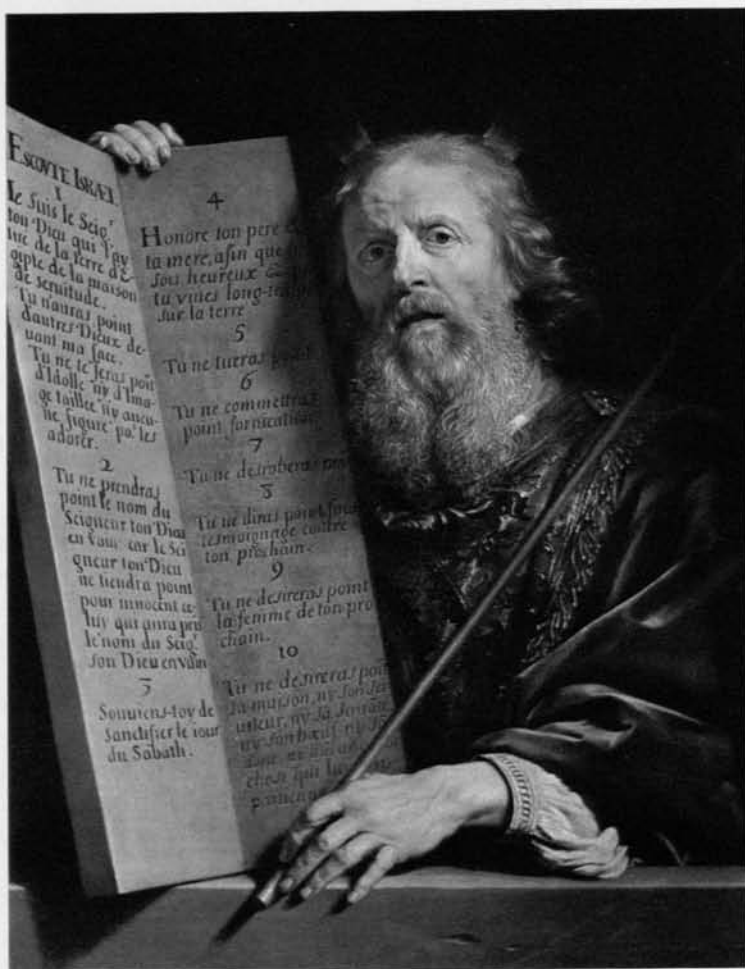 ESCOVTE ISRAEL
1
Ie Suis le Seigr
ton Dieu qui t'ay
tiré de la terre d'E
gipte de la maison
de seruitude.
Tu n'auras point
dautres Dieux de-
uant ma face.
Tu ne te feras poît
d'Idolle ny d'Ima
ge taillée ny aucu-
ne figure por les
adorer.
2
Tu ne prendras
point le nom du
Seigneur ton Dieu
en vain car le Sei
gneur ton Dieu
ne tiendra point
pour innocent ce-
luy qui aura pris
le nom du Seigr
son Dieu en vain
3
Souuiens-toy de
sanctifier le iour
du Sabath.
4
Honore ton pere
ta mere, afin que
sois heureux
tu viues long-temps
sur la terre
5
Tu ne tueras point
6
Tu ne commettras
point fornication
7
Tu ne desroberas
8
Tu ne diras point faux
tesmoignage contre
ton prochain.
9
Tu ne desireras point
la femme de ton pro
chain.
10
Tu ne desireras point
sa maison, ny son ser
uiteur, ny sa seruan
ny son bœuf, ny
chose qui luy